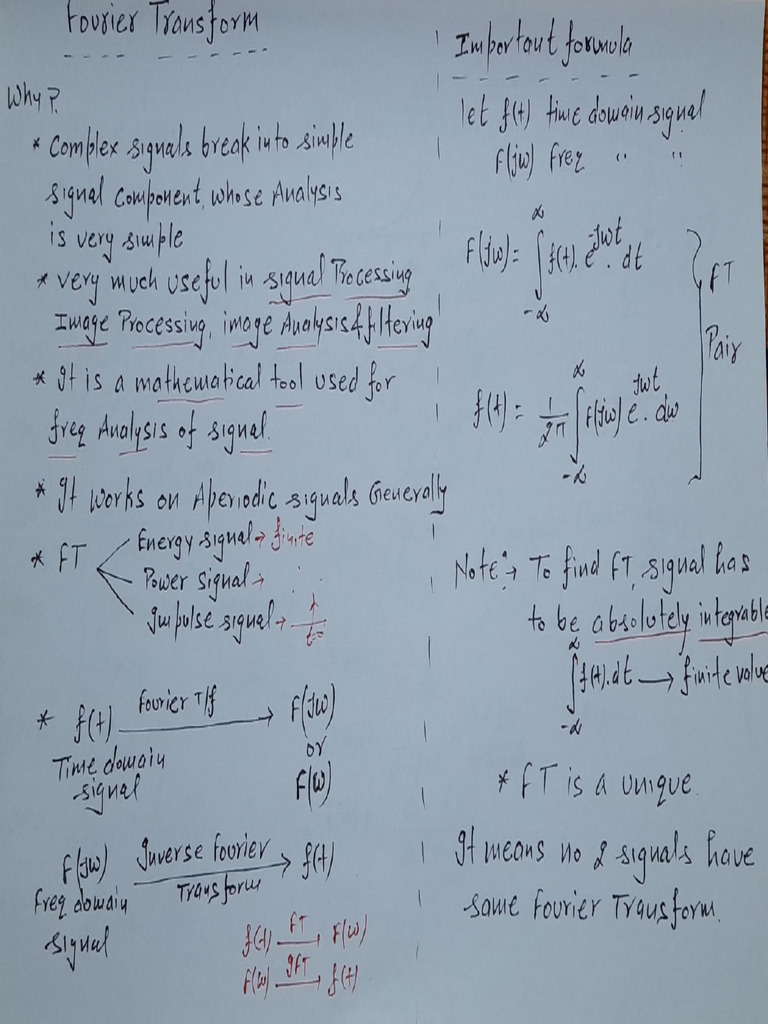 Fourier Transform
Why?
* Complex signals break into simple
signal component, whose Analysis
is very simple
* very much useful in signal Processing
Image Processing, image Analysis & filtering
* It is a mathematical tool used for
freq Analysis of signal.
* It works on Aperiodic signals Generally
* FT
Energy signal → finite
Power signal →
Impulse signal → t=0
* f(t) Fourier T/f → F(jω)
or
Time domain
signal
F(ω)
F(jω) Inverse Fourier Transform → f(t)
Freq domain
signal
f(t) FT → F(ω)
F(ω) IFT → f(t)
Important formula
let f(t) time domain signal
F(jω) Freq " "
F(jω) = ∫_{-∞}^{∞} f(t). e^{-jωt}. dt
f(t) = 1/2π ∫_{-∞}^{∞} F(jω) e^{jωt}. dω
FT
Pair
Note:→ To find FT, signal has
to be absolutely integrable
∫_{-∞}^{∞} f(t).dt → finite value
* FT is a unique.
It means no 2 signals have
same Fourier Transform.